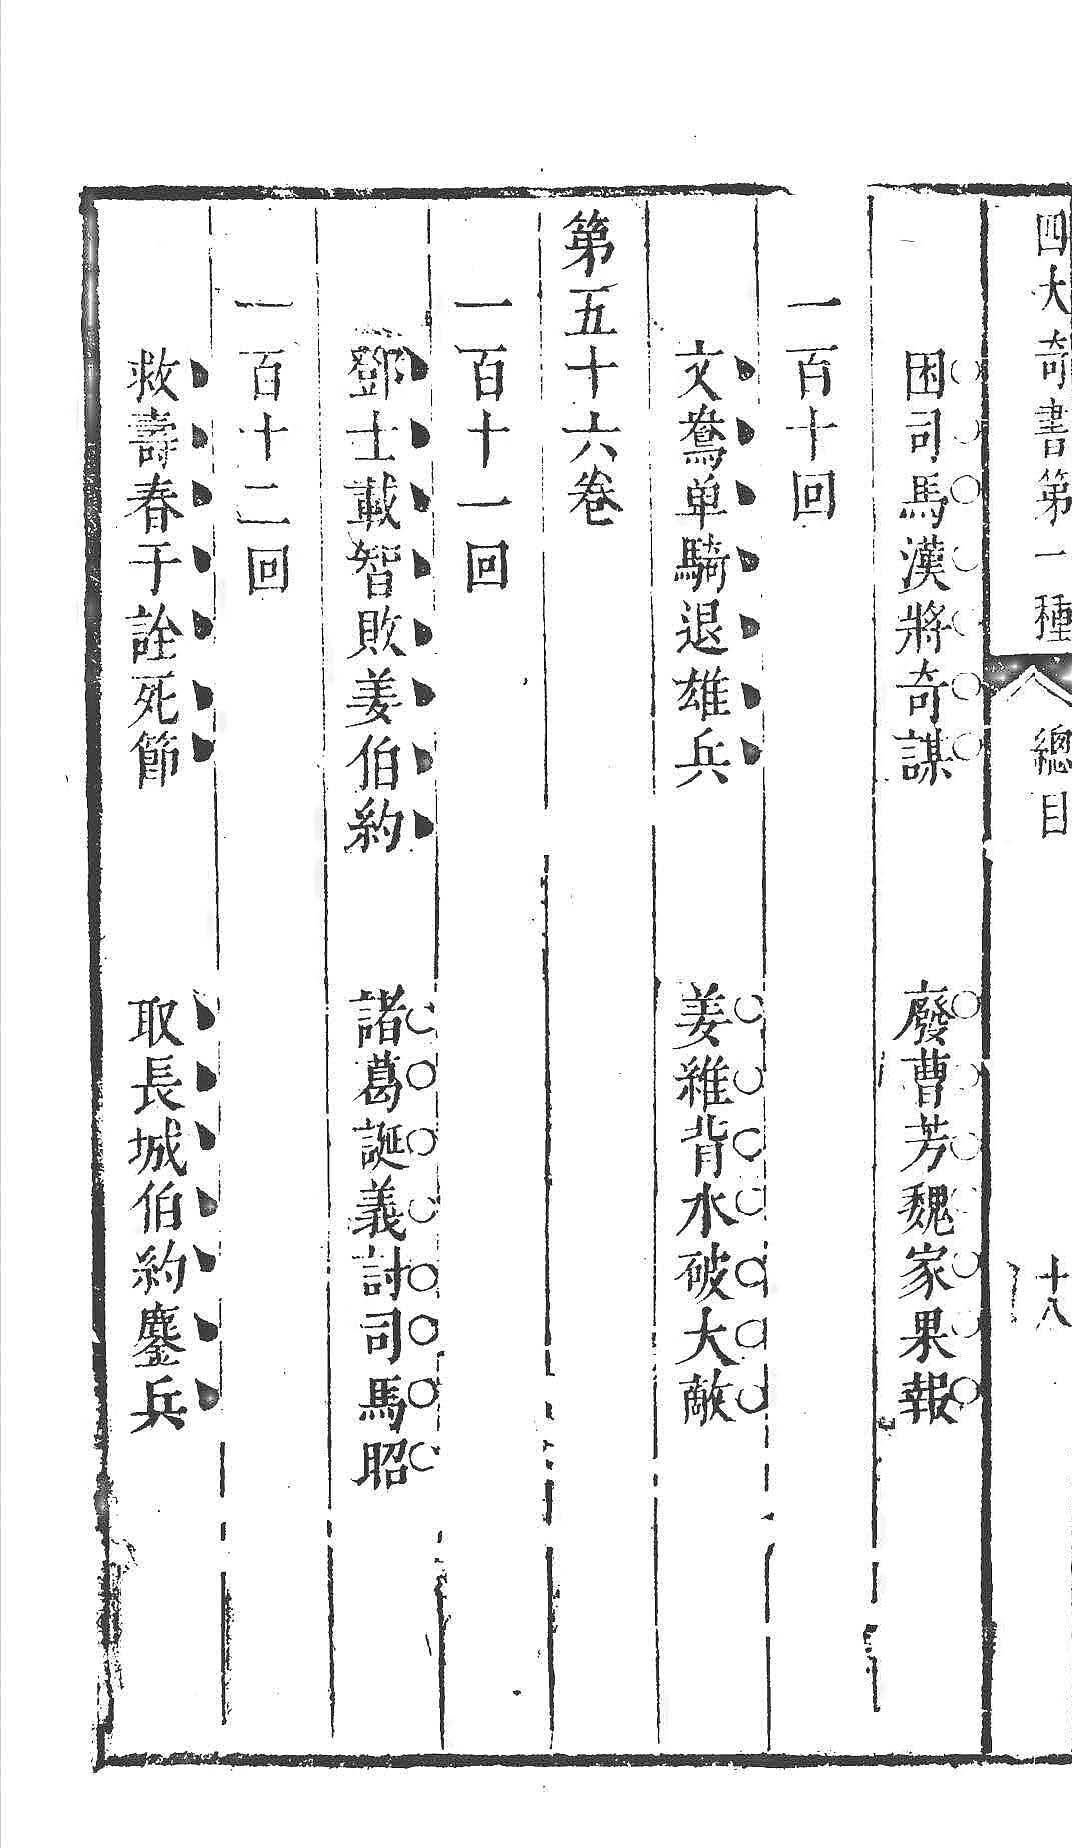 四大奇書第一種 總目 十八
困司馬漢將奇謀 廢曹芳魏家果報
一百十回
文鴦单騎退雄兵 姜維背水破大敵
第五十六卷
一百十一回
鄧士載智敗姜伯約 諸葛誕義討司馬昭
一百十二回
救壽春于詮死節 取長城伯約鏖兵